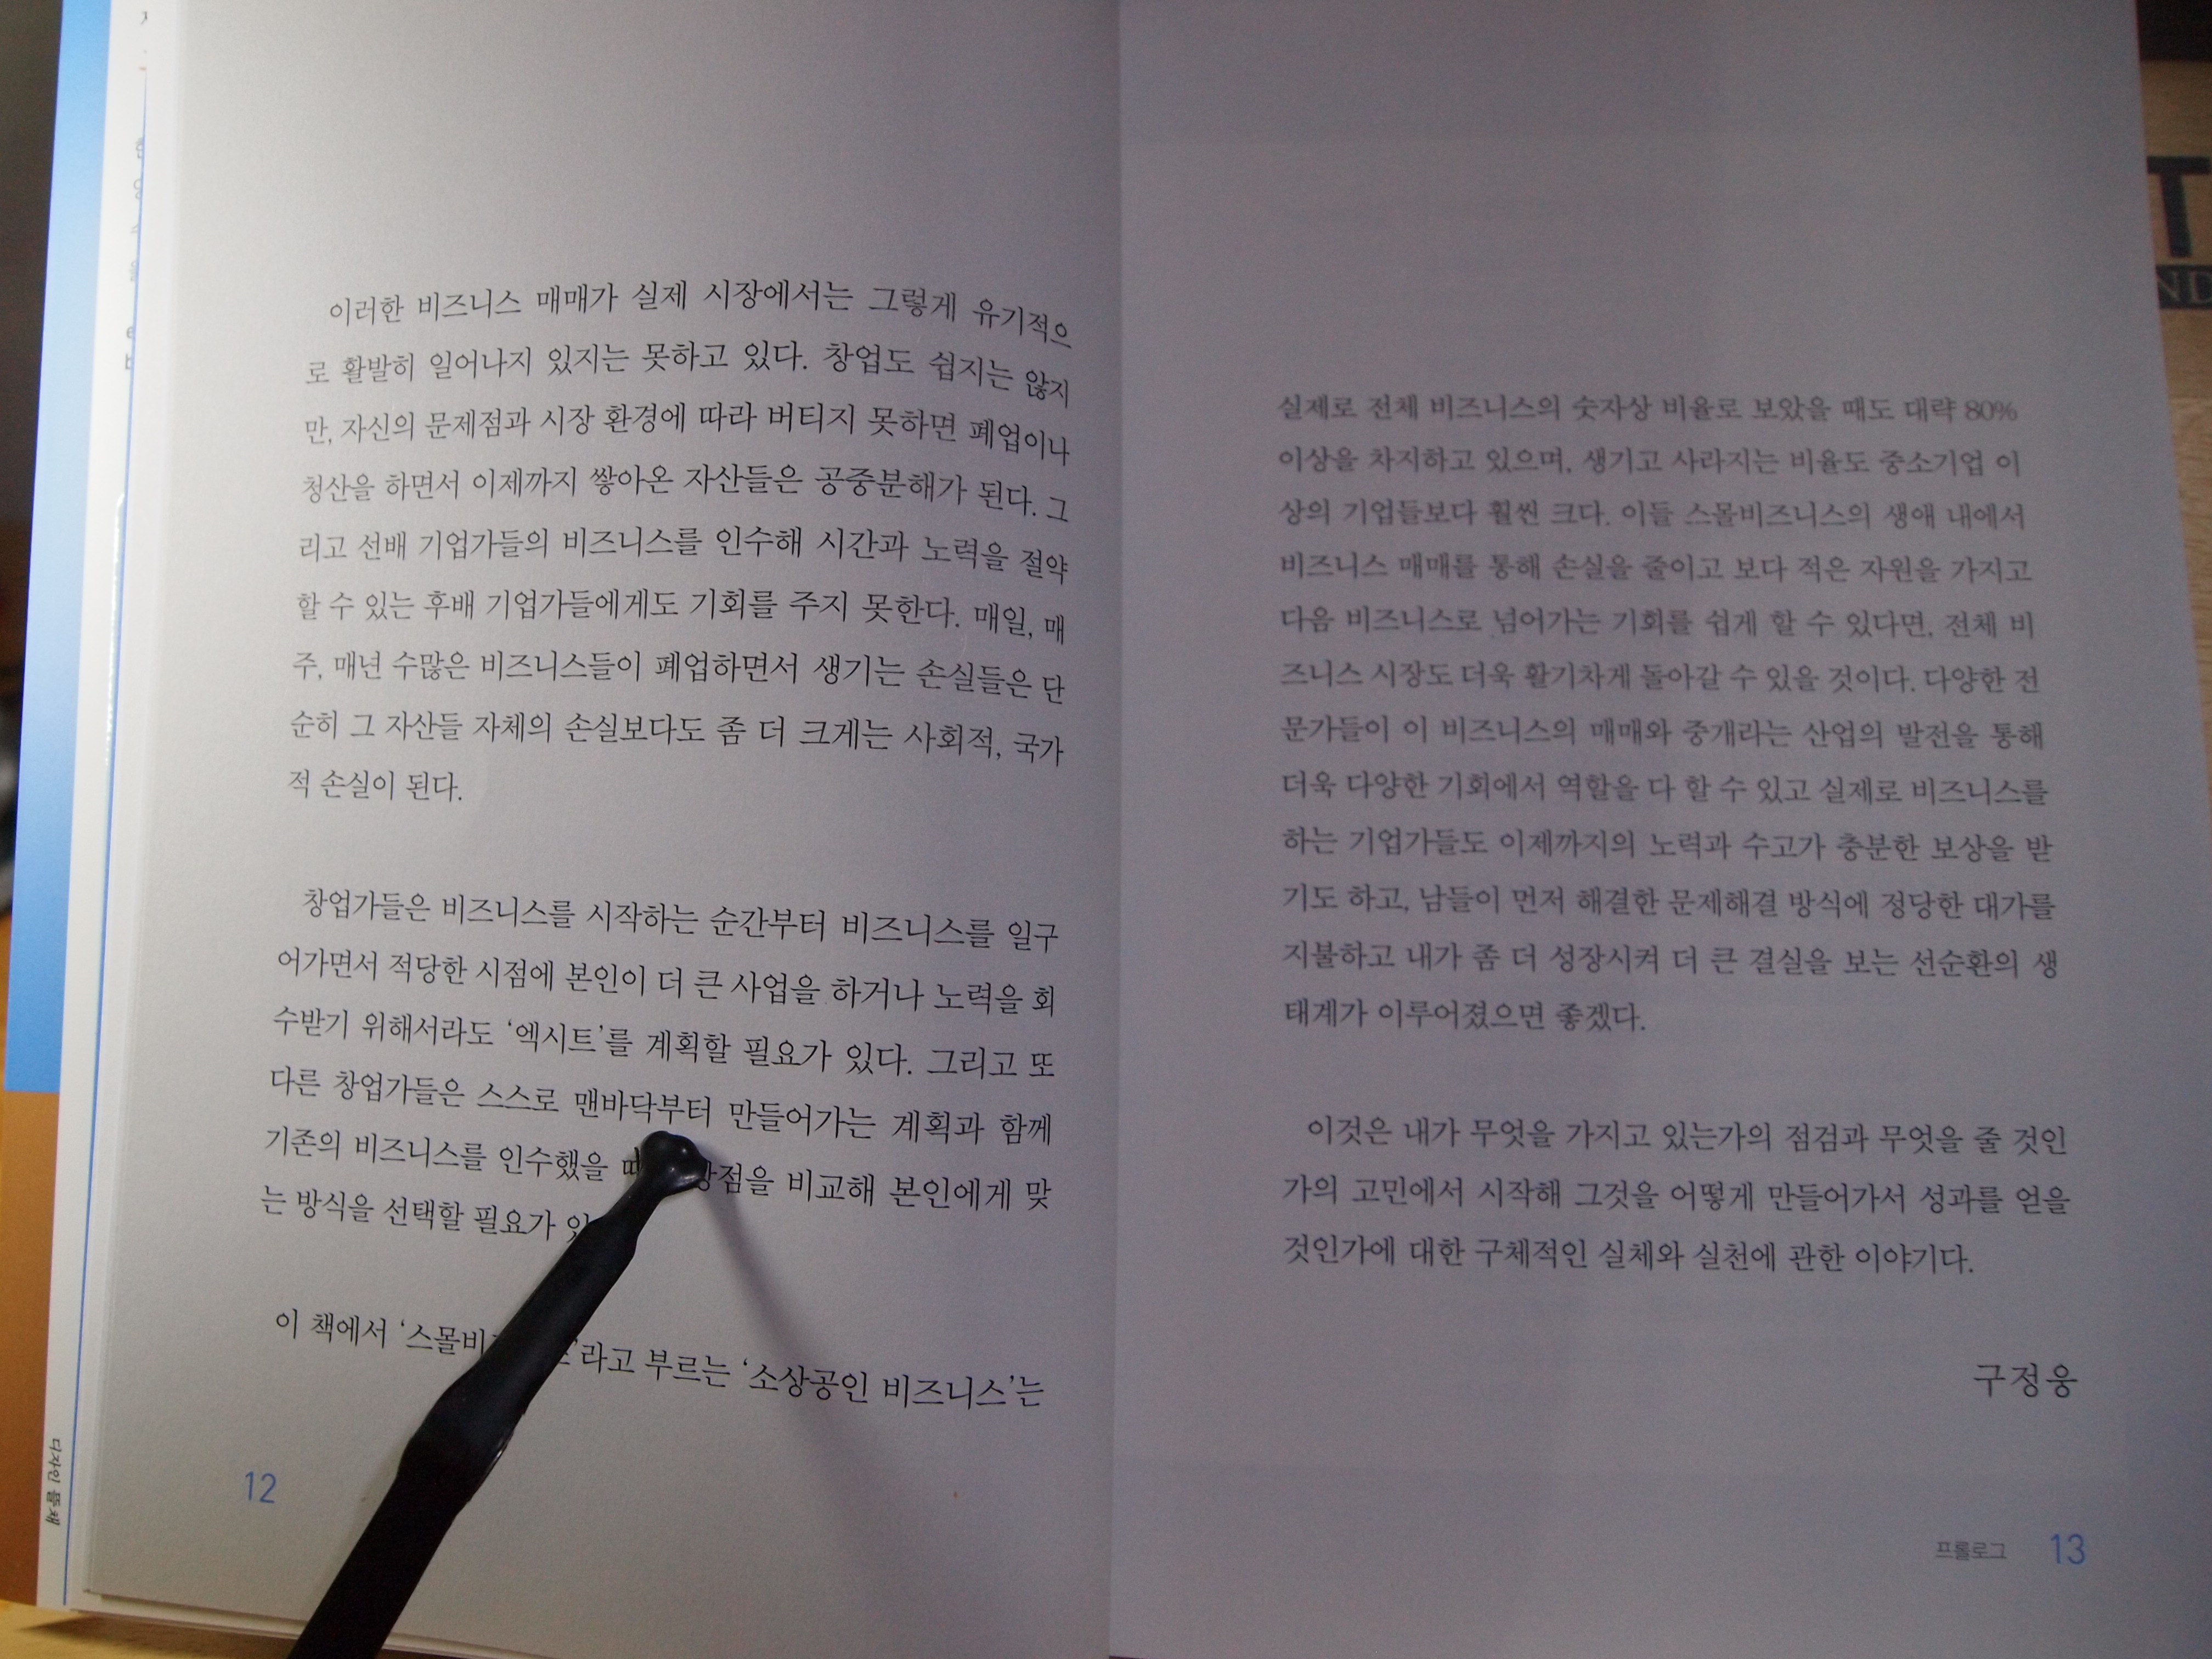 이러한 비즈니스 매매가 실제 시장에서는 그렇게 유기적으
로 활발히 일어나지 있지는 못하고 있다. 창업도 쉽지는 않지
만, 자신의 문제점과 시장 환경에 따라 버티지 못하면 폐업이나
청산을 하면서 이제까지 쌓아온 자산들은 공중분해가 된다. 그
리고 선배 기업가들의 비즈니스를 인수해 시간과 노력을 절약
할 수 있는 후배 기업가들에게도 기회를 주지 못한다. 매일, 매
주, 매년 수많은 비즈니스들이 폐업하면서 생기는 손실들은 단
순히 그 자산들 자체의 손실보다도 좀 더 크게는 사회적, 국가
적 손실이 된다.
창업가들은 비즈니스를 시작하는 순간부터 비즈니스를 일구
어가면서 적당한 시점에 본인이 더 큰 사업을 하거나 노력을 회
수받기 위해서라도 ‘엑시트’를 계획할 필요가 있다. 그리고 또
다른 창업가들은 스스로 맨바닥부터 만들어가는 계획과 함께
기존의 비즈니스를 인수했을 비교해 본인에게 맞
는 방식을 선택할 필요가
이 책에서 라고 부르는 ‘소상공인 비즈니스’는
12
디자인 뜰채
실제로 전체 비즈니스의 숫자상 비율로 보았을 때도 대략 80%
이상을 차지하고 있으며, 생기고 사라지는 비율도 중소기업 이
상의 기업들보다 훨씬 크다. 이들 스몰비즈니스의 생애 내에서
비즈니스 매매를 통해 손실을 줄이고 보다 적은 자원을 가지고
다음 비즈니스로 넘어가는 기회를 쉽게 할 수 있다면, 전체 비
즈니스 시장도 더욱 활기차게 돌아갈 수 있을 것이다. 다양한 전
문가들이 이 비즈니스의 매매와 중개라는 산업의 발전을 통해
더욱 다양한 기회에서 역할을 다 할 수 있고 실제로 비즈니스를
하는 기업가들도 이제까지의 노력과 수고가 충분한 보상을 받
기도 하고, 남들이 먼저 해결한 문제해결 방식에 정당한 대가를
지불하고 내가 좀 더 성장시켜 더 큰 결실을 보는 선순환의 생
태계가 이루어졌으면 좋겠다.
이것은 내가 무엇을 가지고 있는가의 점검과 무엇을 줄 것인
가의 고민에서 시작해 그것을 어떻게 만들어가서 성과를 얻을
것인가에 대한 구체적인 실체와 실천에 관한 이야기다.
구정웅
프롤로그 13